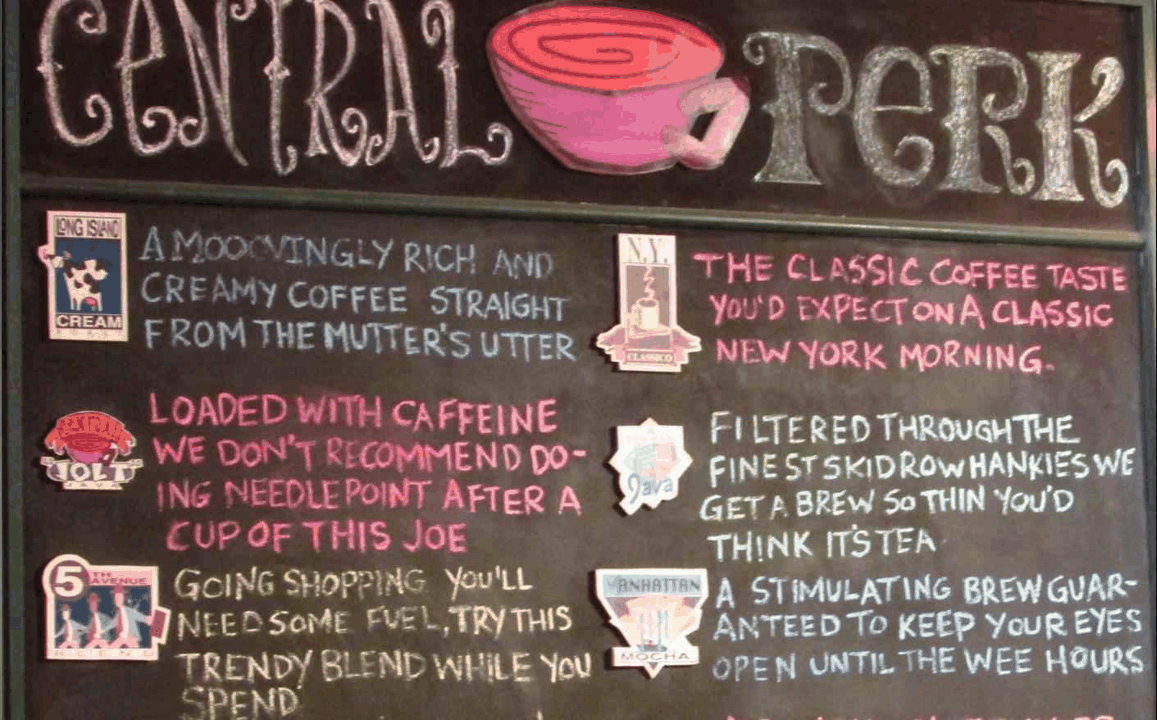 CENTRAL PERK
LONG ISLAND
CREAM
A MOOOVINGLY RICH AND
CREAMY COFFEE STRAIGHT
FROM THE MUTTER'S UTTER
N.Y.
CLASSICO
THE CLASSIC COFFEE TASTE
YOU'D EXPECT ON A CLASSIC
NEW YORK MORNING.
JOLT
JAVA
LOADED WITH CAFFEINE
WE DON'T RECOMMEND DO-
ING NEEDLEPOINT AFTER A
CUP OF THIS JOE
Java
FILTERED THROUGH THE
FINEST SKID ROW HANKIES WE
GET A BREW SO THIN YOU'D
THINK IT'S TEA
5TH
AVENUE
BLEND
GOING SHOPPING YOU'LL
NEED SOME FUEL, TRY THIS
TRENDY BLEND WHILE YOU
SPEND
MANHATTAN
MOCHA
A STIMULATING BREW GUAR-
ANTEED TO KEEP YOUR EYES
OPEN UNTIL THE WEE HOURS